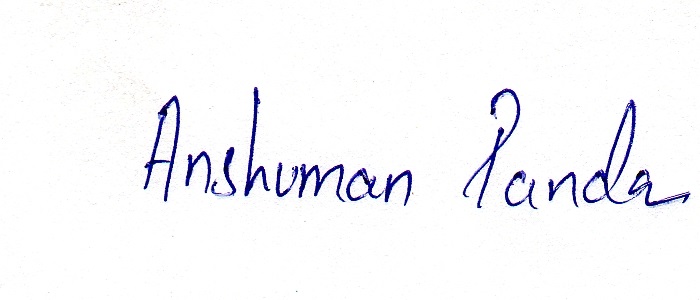 Anshuman Panda